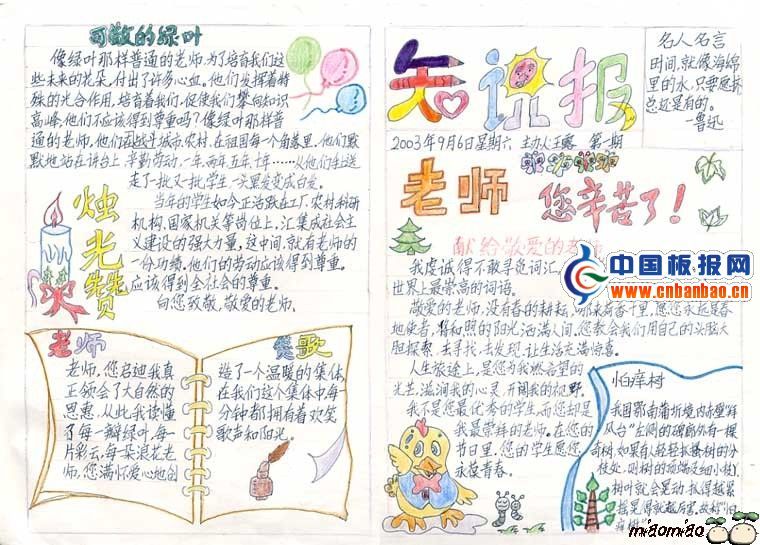 可敬的绿叶
像绿叶那样普通的老师,为了培育我们这
些未来的花朵,付出了许多心血。他们发挥着特
殊的光合作用,培育着我们,促使我们攀向知识
高峰,他们不应该得到尊重吗?像绿叶那样普
通的老师,他们 城市、农村,在祖国每个角落里,他们默
默地站在讲台上,辛勤劳动,一年、两年、五年、十年……从他们手上送
走了一批又一批学生,一头黑发变成白发。
当年的学生如今正活跃在工厂、农村、科研
机构、国家机关等岗位上,汇集成社会主
义建设的强大力量,这中间,就有老师的
一份功绩。他们的劳动应该得到尊重。
应该得到全社会的尊重。
向您致敬,敬爱的老师。
烛光赞
老师
赞歌
老师,您启迪我真
正领会了大自然的
恩惠,从此,我读懂
了每一瓣绿叶,每一
片彩云,每朵浪花老
师,您满怀爱心地创
造了一个温暖的集体,
在我们这个集体中每一
分钟都拥有着欢笑
歌声和阳光。
知识报
2003年9月6日星期六 主办人:王 第一期
名人名言
时间,就像海绵
里的水,只要愿挤
总还是有的。
—鲁迅
老师 您辛苦了!
献给敬爱的老师
我虔诚得不敢寻觅词汇,
世界上最崇高的词语。
敬爱的老师,没有春的耕耘,哪来 千里,愿您永远是春
地使者,将和照的阳光洒满人间,您教会我们用自己的头脑大
胆探索,去寻找、去发现,让生活充满惊喜。
人生旅途上,是您为我燃希望的
光芒,滋润我的心灵,开阔我的视野。
我不是您最优秀的学生,而您却是
我最崇拜的老师。在您的
节日里,您的学生愿您
永葆青春。
怕痒树
我国鄂南蒲圻境内赤壁"拜
风台"左侧的 有一棵
奇树,如果有人轻轻抓搔树的分
枝处,则树的顶端及细小枝
树叶就会晃动,抓得越累
摇晃得就越厉害,故称"怕
痒树"
中国板报网
www.cnbanbao.cn
miaomiao